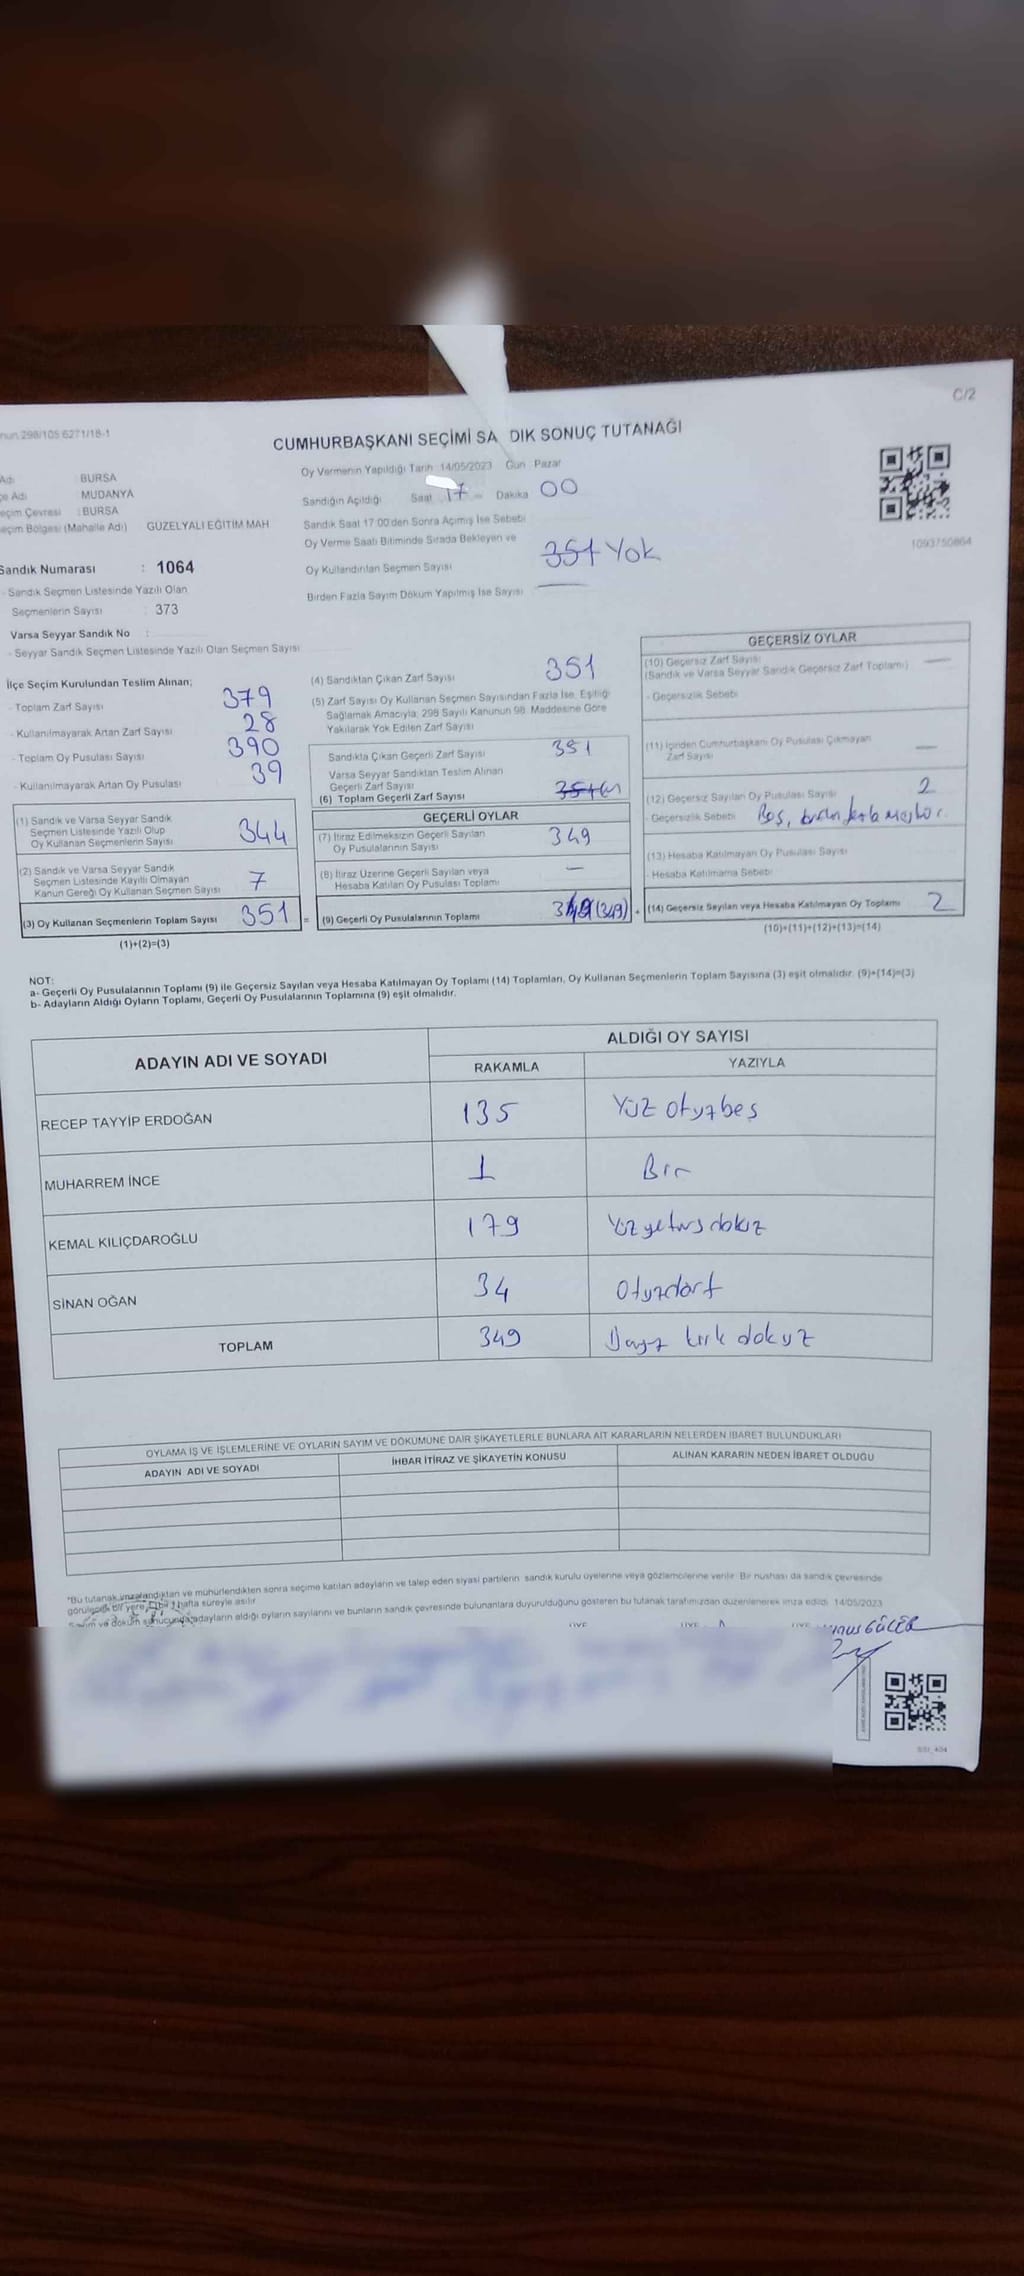 C/2
298/105 6271/18-1
CUMHURBAŞKANI SEÇİMİ SA DIK SONUÇ TUTANAĞI
Adı : BURSA
çe Adı : MUDANYA
eçim Çevresi : BURSA
eçim Bölgesi (Mahalle Adı) GÜZELYALI EĞİTİM MAH
Sandık Numarası : 1064
- Sandık Seçmen Listesinde Yazılı Olan
Seçmenlerin Sayısı : 373
Varsa Seyyar Sandık No :
- Seyyar Sandık Seçmen Listesinde Yazılı Olan Seçmen Sayısı
Oy Vermenin Yapıldığı Tarih 14/05/2023 Gün Pazar
Sandığın Açıldığı Saat 17 Dakika 00
Sandık Saat 17:00'den Sonra Açımış İse Sebebi
Oy Verme Saati Bitiminde Sırada Bekleyen ve
Oy Kullandırılan Seçmen Sayısı 351 Yok
Birden Fazla Sayım Döküm Yapılmış İse Sayısı
1093750864
İlçe Seçim Kurulundan Teslim Alınan;
- Toplam Zarf Sayısı 379
- Kullanılmayarak Artan Zarf Sayısı 28
- Toplam Oy Pusulası Sayısı 390
- Kullanılmayarak Artan Oy Pusulası 39
(1) Sandık ve Varsa Seyyar Sandık
Seçmen Listesinde Yazılı Olup
Oy Kullanan Seçmenlerin Sayısı 344
(2) Sandık ve Varsa Seyyar Sandık
Seçmen Listesinde Kayıtlı Olmayan
Kanun Gereği Oy Kullanan Seçmen Sayısı 7
(3) Oy Kullanan Seçmenlerin Toplam Sayısı 351 =
(1)+(2)=(3)
(4) Sandıktan Çıkan Zarf Sayısı 351
(5) Zarf Sayısı Oy Kullanan Seçmen Sayısından Fazla İse, Eşitliği
Sağlamak Amacıyla; 298 Sayılı Kanunun 98. Maddesine Göre
Yakılarak Yok Edilen Zarf Sayısı
Sandıkta Çıkan Geçerli Zarf Sayısı 351
Varsa Seyyar Sandıktan Teslim Alınan
Geçerli Zarf Sayısı
(6) Toplam Geçerli Zarf Sayısı 351
GEÇERLİ OYLAR
(7) İtiraz Edilmeksizin Geçerli Sayılan
Oy Pusulalarının Sayısı 349
(8) İtiraz Üzerine Geçerli Sayılan veya
Hesaba Katılan Oy Pusulası Toplamı —
(9) Geçerli Oy Pusulalarının Toplamı 349 (349) +
GEÇERSİZ OYLAR
(10) Geçersiz Zarf Sayısı —
(Sandık ve Varsa Seyyar Sandık Geçersiz Zarf Toplamı)
- Geçersizlik Sebebi
(11) İçinden Cumhurbaşkanı Oy Pusulası Çıkmayan
Zarf Sayısı —
(12) Geçersiz Sayılan Oy Pusulası Sayısı 2
- Geçersizlik Sebebi Boş,
(13) Hesaba Katılmayan Oy Pusulası Sayısı
- Hesaba Katılmama Sebebi
(14) Geçersiz Sayılan veya Hesaba Katılmayan Oy Toplamı 2
(10)+(11)+(12)+(13)=(14)
NOT:
a- Geçerli Oy Pusulalarının Toplamı (9) ile Geçersiz Sayılan veya Hesaba Katılmayan Oy Toplamı (14) Toplamları, Oy Kullanan Seçmenlerin Toplam Sayısına (3) eşit olmalıdır. (9)+(14)=(3)
b- Adayların Aldığı Oyların Toplamı, Geçerli Oy Pusulalarının Toplamına (9) eşit olmalıdır.
ADAYIN ADI VE SOYADI
ALDIĞI OY SAYISI
RAKAMLA YAZIYLA
RECEP TAYYİP ERDOĞAN 135 Yüz otuzbeş
MUHARREM İNCE 1 Bir
KEMAL KILIÇDAROĞLU 179 Yüzyetmişdokuz
SİNAN OĞAN 34 Otuzdört
TOPLAM 349 Üçyüz kırk dokuz
OYLAMA İŞ VE İŞLEMLERİNE VE OYLARIN SAYIM VE DÖKÜMÜNE DAİR ŞİKAYETLERLE BUNLARA AİT KARARLARIN NELERDEN İBARET BULUNDUKLARI
ADAYIN ADI VE SOYADI İHBAR İTİRAZ VE ŞİKAYETİN KONUSU ALINAN KARARIN NEDEN İBARET OLDUĞU
*Bu tutanak imzalandıktan ve mühürlendikten sonra seçime katılan adayların ve talep eden siyasi partilerin sandık kurulu üyelerine veya gözlemcilerine verilir. Bir nüshası da sandık çevresinde
görülecek bir yere, 1 hafta süreyle asılır.
Sayım ve döküm sonucunda adayların aldığı oyların sayılarını ve bunların sandık çevresinde bulunanlara duyurulduğunu gösteren bu tutanak tarafımızdan düzenlenerek imza edildi. 14/05/2023
ÜYE ÜYE ÜYE
GÜLER